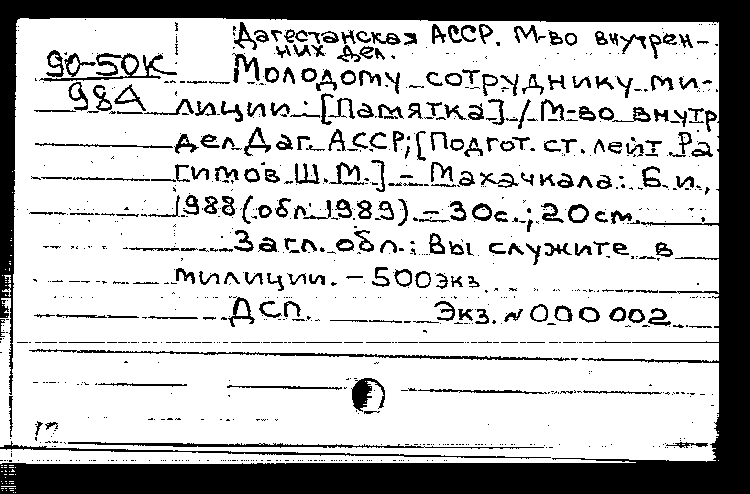 Дагестанская АССР. М-во внутрен-
них дел.
90-50К
984
Молодому сотруднику ми-
лиции: [Памятка] / М-во внутр
дел Даг. АССР; [Подгот. ст. лейт Ра
гимов Ш. М.] - Махачкала: Б.и.,
1988 (обл. 1989). - 30с.; 20см.
Загл. обл.: Вы служите в
милиции. - 500экз
ДСП. Экз. № 000002